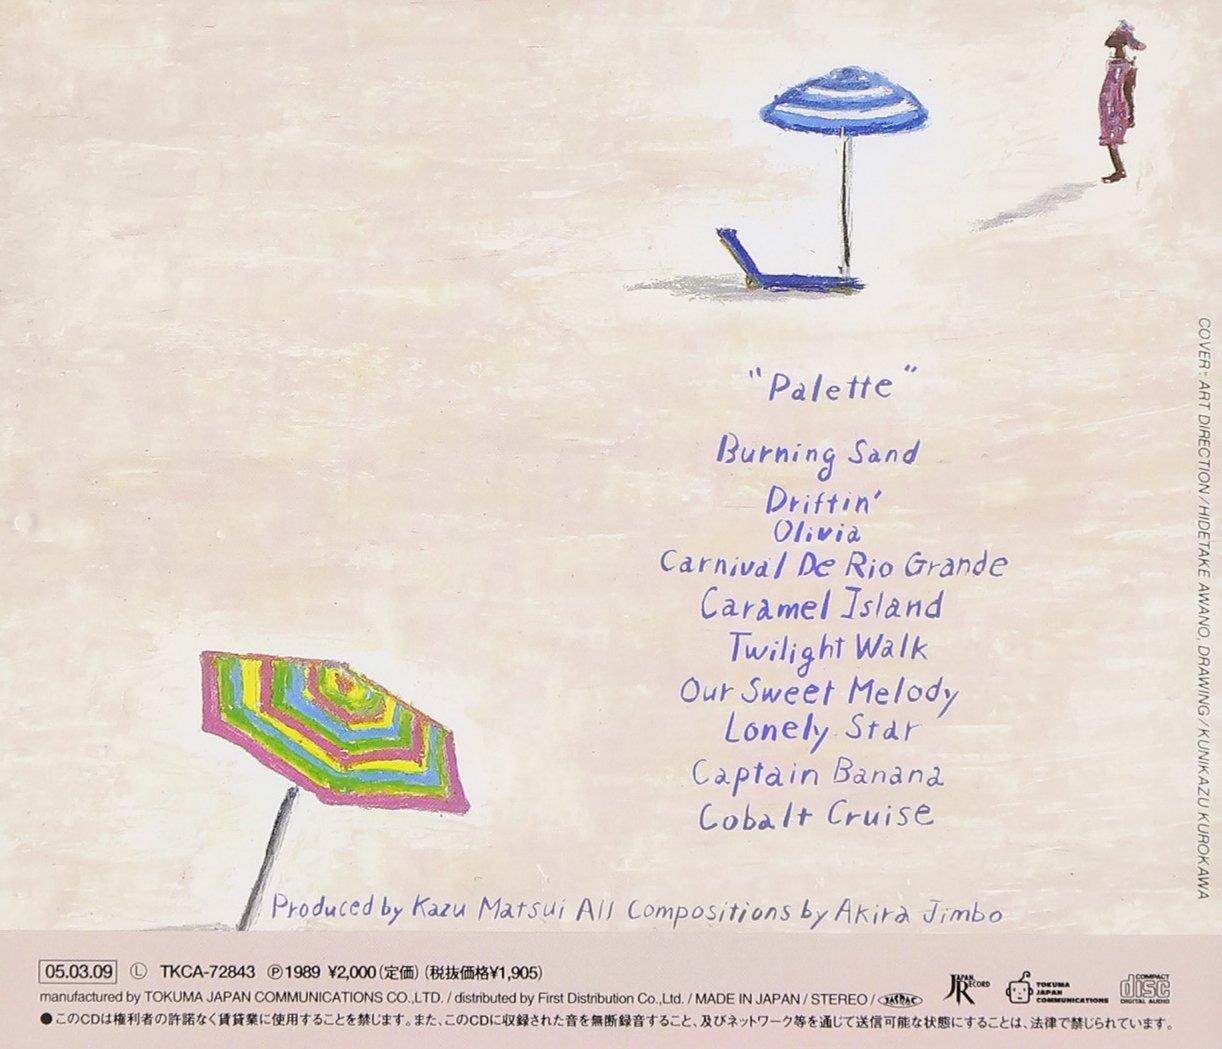 "Palette"
Burning Sand
Driftin'
Olivia
Carnival De Rio Grande
Caramel Island
Twilight Walk
Our Sweet Melody
Lonely Star
Captain Banana
Cobalt Cruise
Produced by Kazu Matsui All Compositions by Akira Jimbo
COVER - ART DIRECTION / HIDETAKE AWANO, DRAWING / KUNIKAZU KUROKAWA
05.03.09 Ⓛ TKCA-72843 Ⓟ1989 ¥2,000(定価)(税抜価格¥1,905)
manufactured by TOKUMA JAPAN COMMUNICATIONS CO.,LTD. / distributed by First Distribution Co.,Ltd. / MADE IN JAPAN / STEREO / JASRAC
JAPAN RECORD
TOKUMA
JAPAN
COMMUNICATIONS
COMPACT
disc
DIGITAL AUDIO
●このCDは権利者の許諾なく賃貸業に使用することを禁じます。また、このCDに収録された音を無断録音すること、及びネットワーク等を通じて送信可能な状態にすることは、法律で禁じられています。